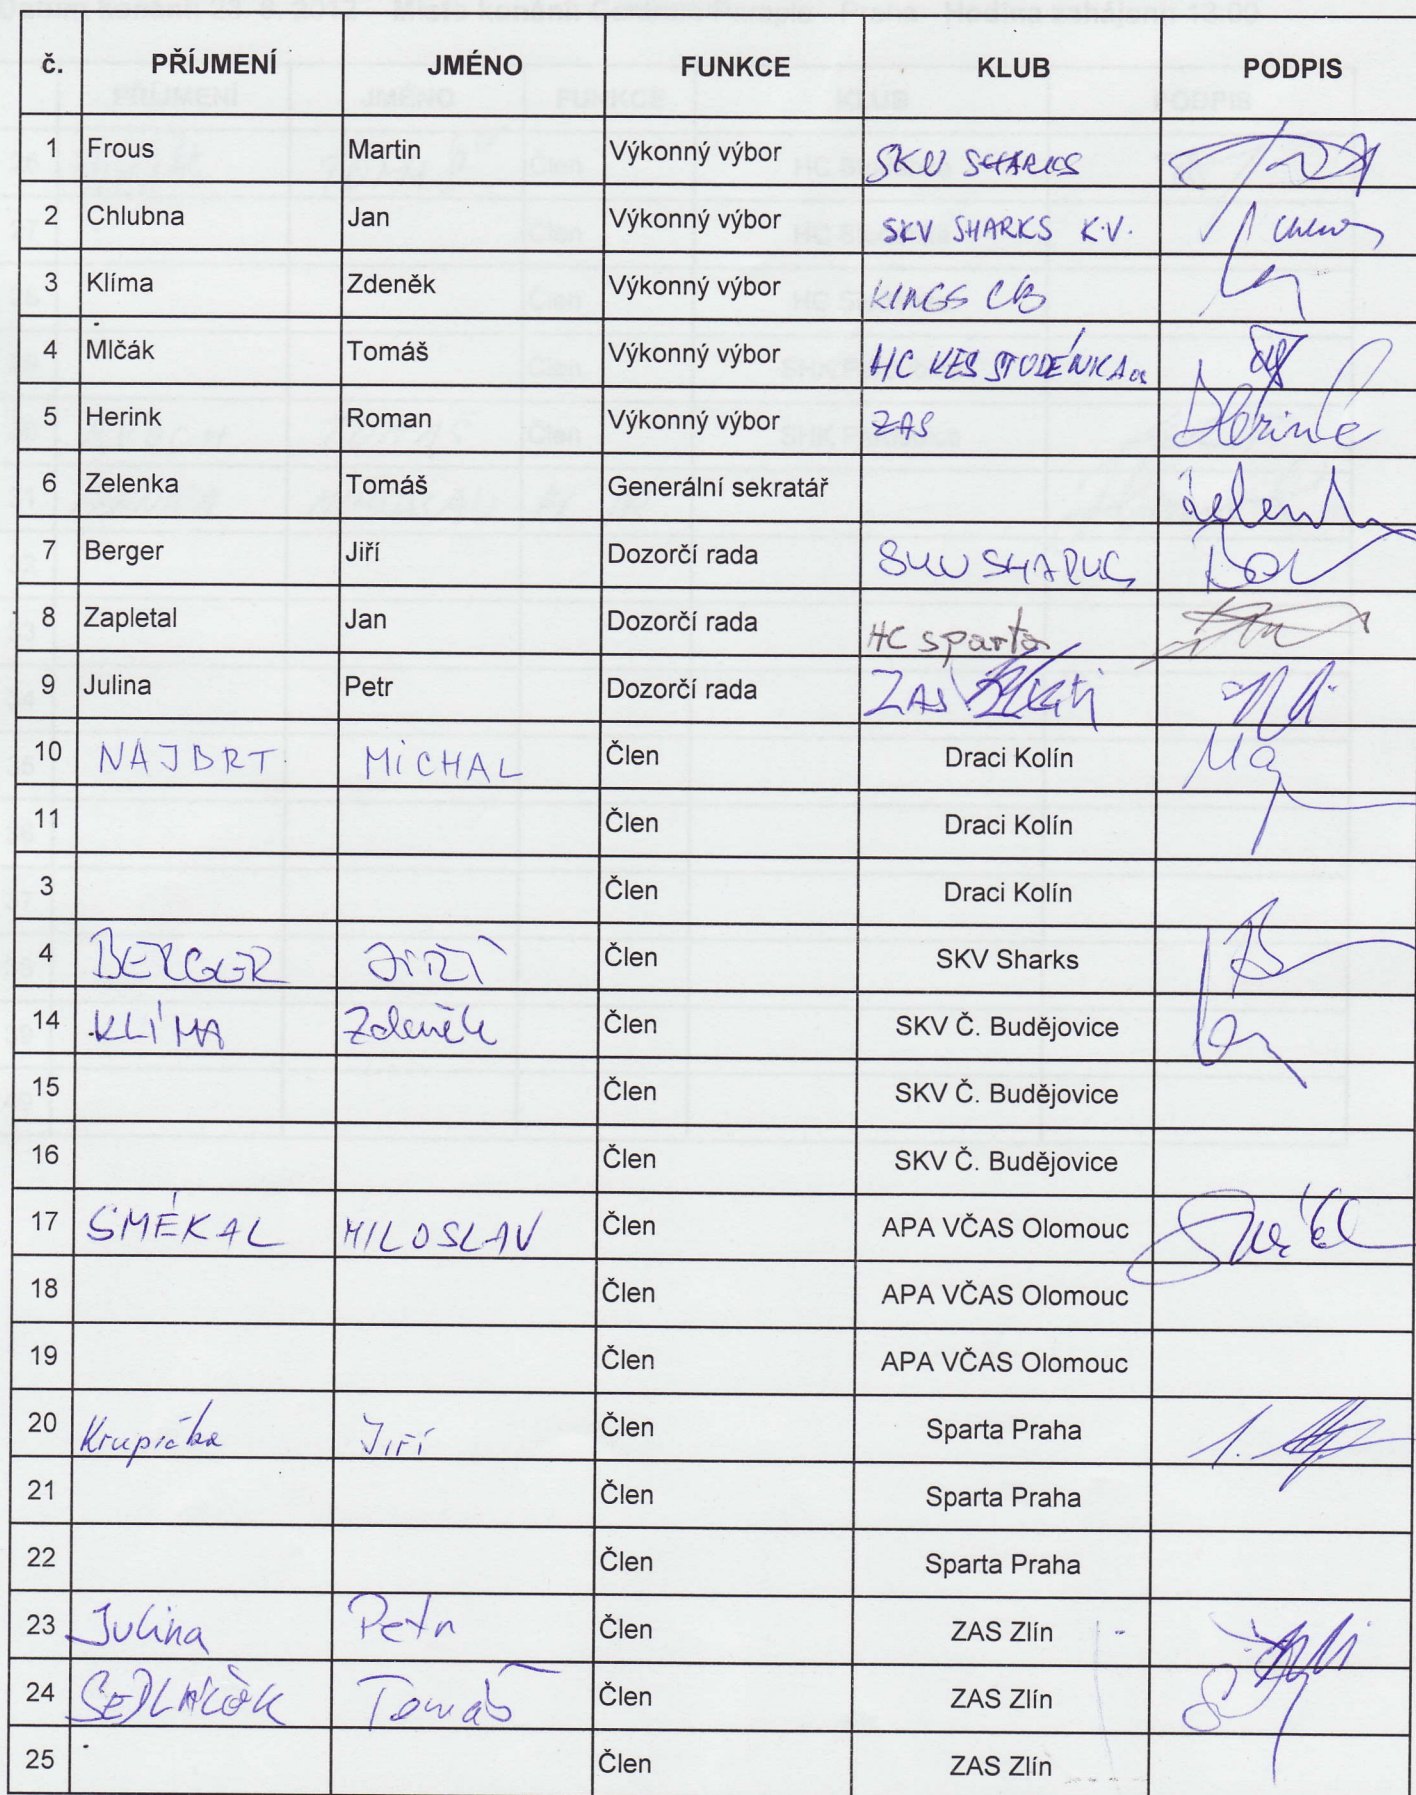 č. PŘÍJMENÍ JMÉNO FUNKCE KLUB PODPIS
1 Frous Martin Výkonný výbor SKV SHARKS
2 Chlubna Jan Výkonný výbor SKV SHARKS K.V.
3 Klíma Zdeněk Výkonný výbor KINGS ČB
4 Mlčák Tomáš Výkonný výbor HC KES STUDÉNKA
5 Herink Roman Výkonný výbor ZAS Herink
6 Zelenka Tomáš Generální sekratář
7 Berger Jiří Dozorčí rada SKV SHARKS
8 Zapletal Jan Dozorčí rada HC sparta
9 Julina Petr Dozorčí rada ZAS
10 NAJBRT MiCHAL Člen Draci Kolín
11 Člen Draci Kolín
3 Člen Draci Kolín
4 BERGER JIŘÍ Člen SKV Sharks
14 KLÍMA Zdeněk Člen SKV Č. Budějovice
15 Člen SKV Č. Budějovice
16 Člen SKV Č. Budějovice
17 SMÉKAL MILOSLAV Člen APA VČAS Olomouc
18 Člen APA VČAS Olomouc
19 Člen APA VČAS Olomouc
20 Krupička Jiří Člen Sparta Praha
21 Člen Sparta Praha
22 Člen Sparta Praha
23 Julina Petr Člen ZAS Zlín
24 SEDLÁČEK Tomáš Člen ZAS Zlín
25 Člen ZAS Zlín